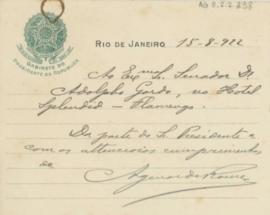 AG 8.2.2 238
RIO DE JANEIRO, 15-8-922
GABINETE DO
PRESIDENTE DA REPUBLICA
Ao Exmo. Senador Dr.
Adolpho Gordo, no Hotel
Splendid - Flamengo.
Da parte do Sr. Presidente e
com os attenciosos cumprimentos
de
Agenor de Roure